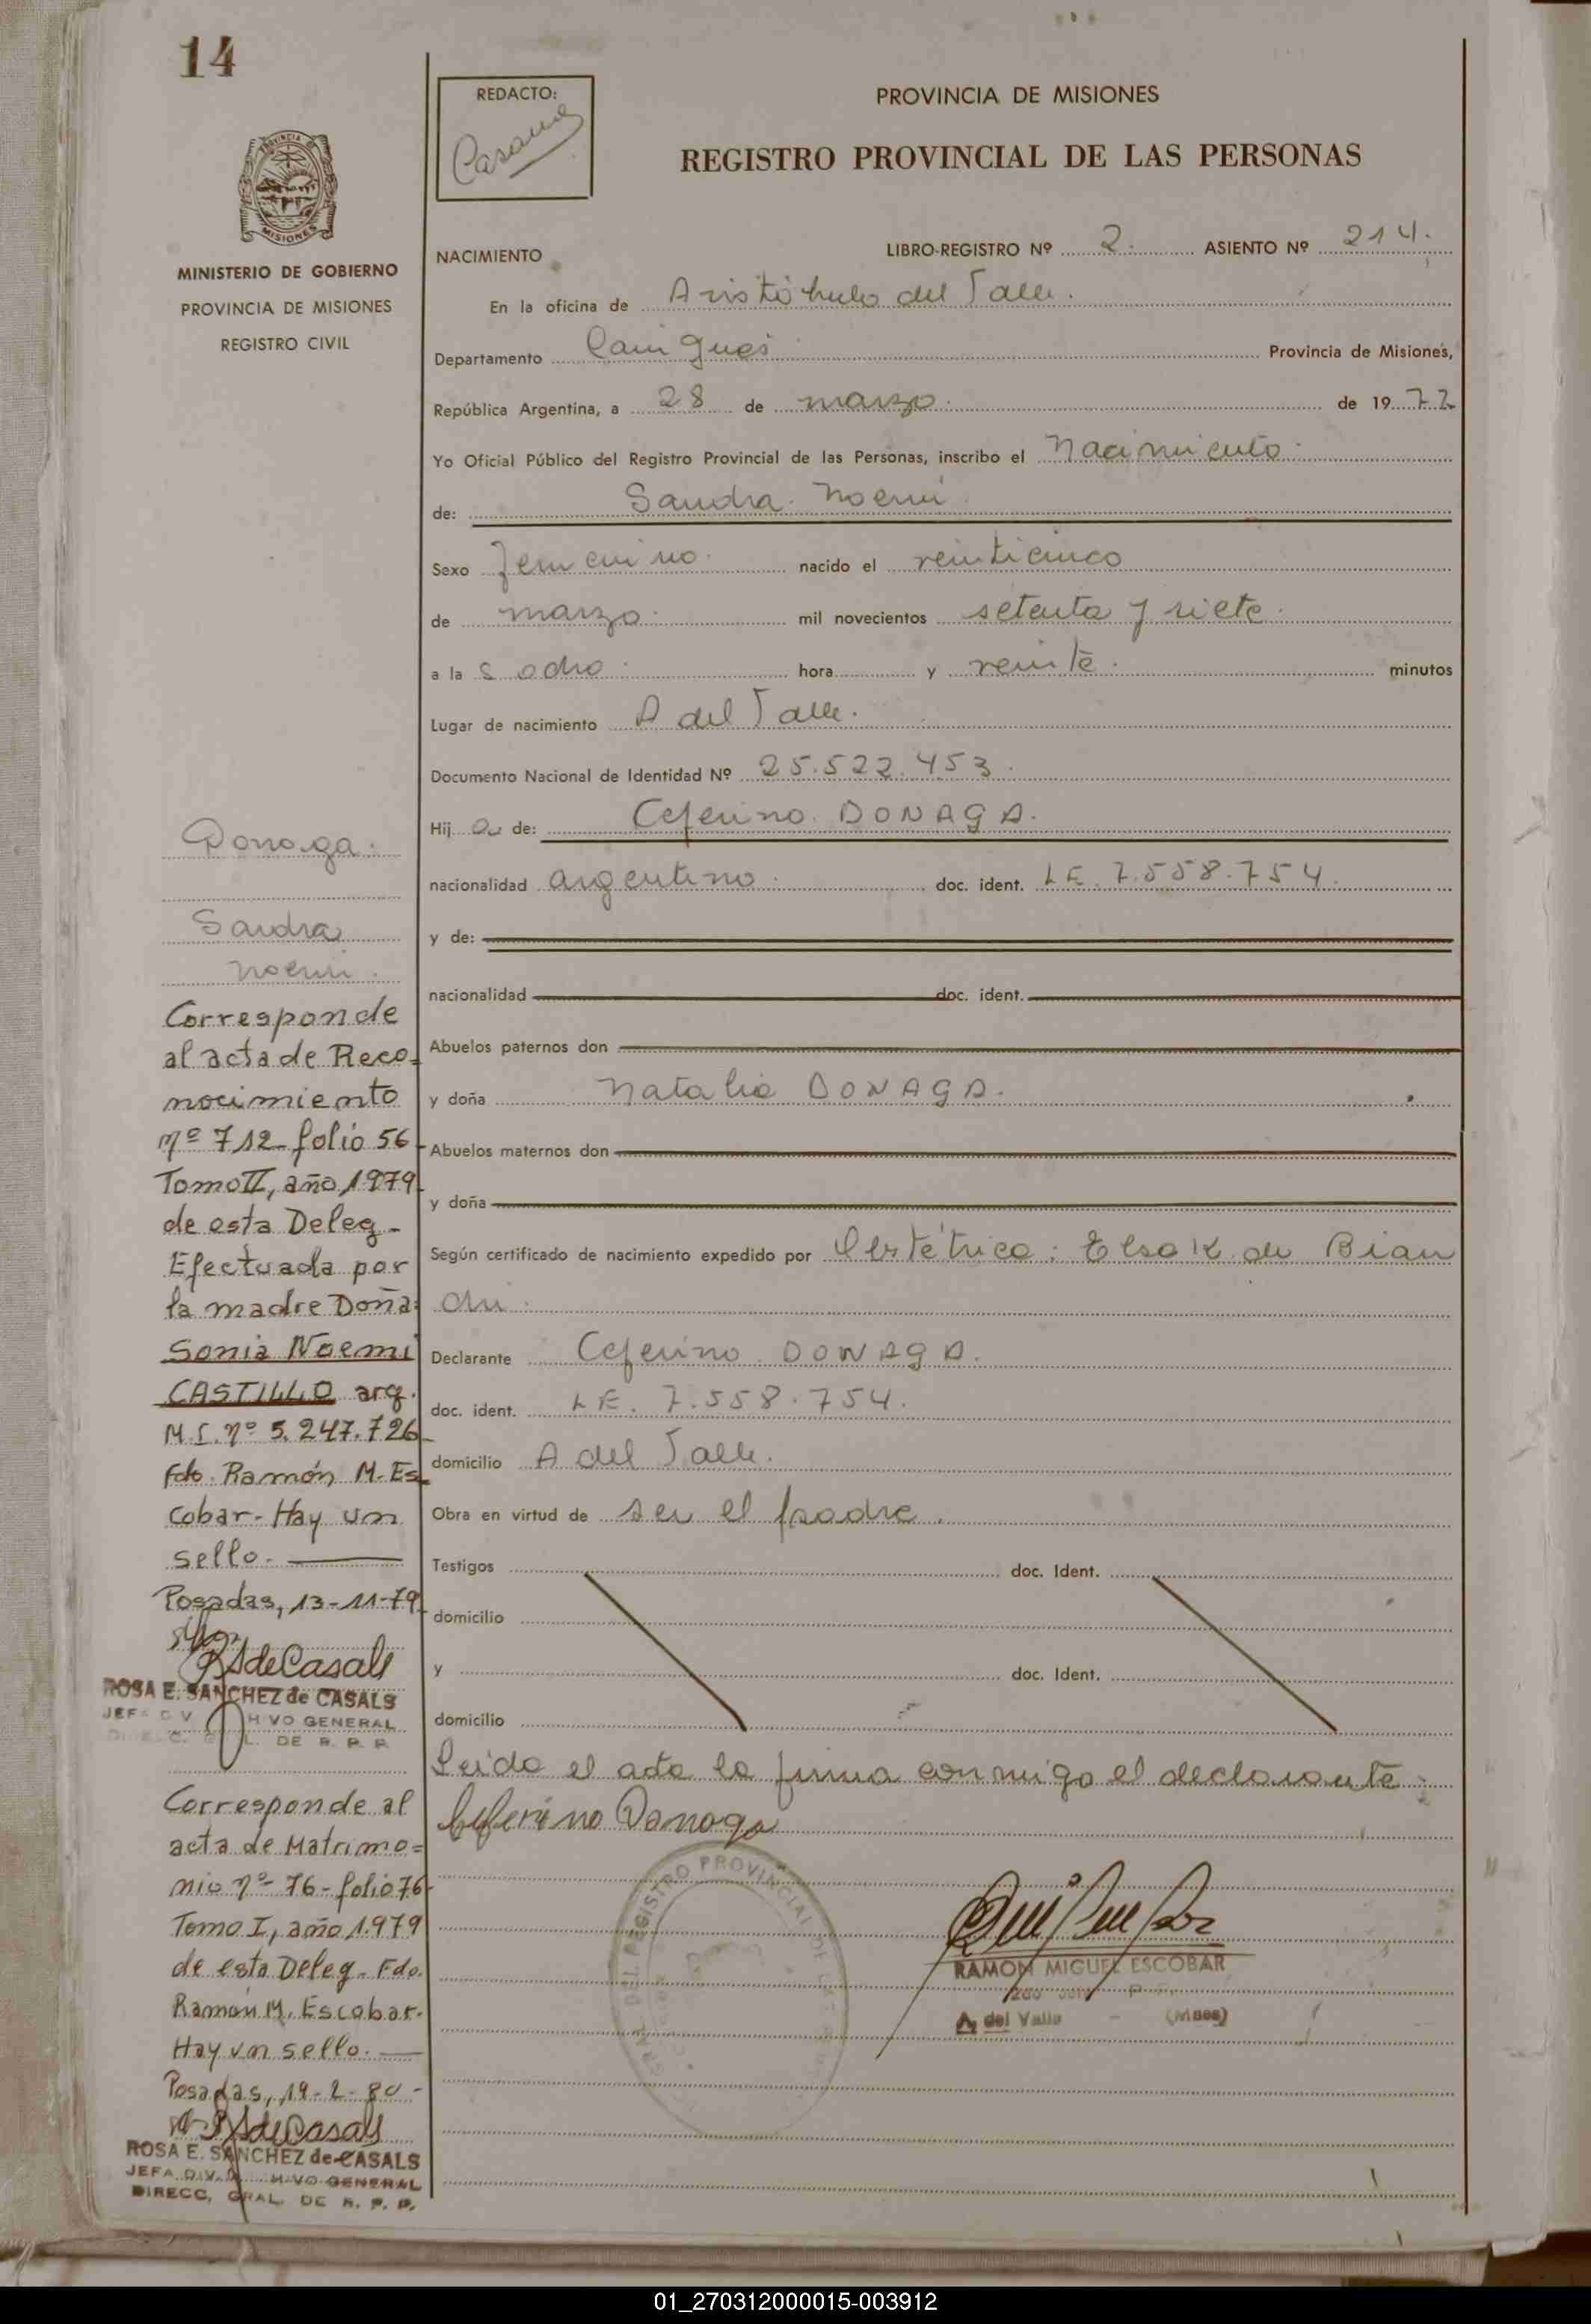 14
REDACTO:
PROVINCIA DE MISIONES
REGISTRO PROVINCIAL DE LAS PERSONAS
MISIONES
MINISTERIO DE GOBIERNO
PROVINCIA DE MISIONES
REGISTRO CIVIL
NACIMIENTO
LIBRO-REGISTRO Nº 2. ASIENTO Nº 214.
En la oficina de Aristóbulo del Valle.
Departamento Cainguas Provincia de Misiones,
República Argentina, a 28 de marzo. de 1977
Yo Oficial Público del Registro Provincial de las Personas, inscribo el Nacimiento.
de: Sandra Noemi
Sexo femenino. nacido el veinticinco
de marzo. mil novecientos setenta y siete.
a la s ocho. hora y veinte. minutos
Lugar de nacimiento A del Valle.
Documento Nacional de Identidad Nº 25.522.453.
Hij a de: Ceferino DONAGA.
nacionalidad argentino. doc. ident. LE. 7.558.754.
y de:
nacionalidad doc. ident.
Abuelos paternos don
y doña Natalia DONAGA.
Abuelos maternos don
y doña
Según certificado de nacimiento expedido por Obstétrica: Elsa K. de Bian
chi.
Declarante Ceferino DONAGA.
doc. ident. LE. 7.558.754.
domicilio A del Valle.
Obra en virtud de ser el padre.
Testigos doc. Ident.
domicilio
y doc. Ident.
domicilio
Leida el acta la firma conmigo el declarante.
Ceferino Donaga
RAMON MIGUEL ESCOBAR
A. del Valle - (Mnes)
Donaga.
Sandra
Noemi.
Corresponde
al acta de Reco=
nocimiento
nº 712- folio 56-
Tomo II, año 1979-
de esta Deleg-
Efectuada por
la madre Doña:
Sonia Noemi
CASTILLO arg.
M.I. nº 5.247.726-
Fdo. Ramón M. Es-
cobar- Hay un
sello.
Posadas, 13-11-79-
RSdeCasals
ROSA E. SANCHEZ de CASALS
JEFA DIV. ARCHIVO GENERAL
DIRECC. GRAL. DE R. P. P.
Corresponde al
acta de Matrimo=
nio nº- 76- folio 76-
Tomo I, año 1.979
de esta Deleg- Fdo.
Ramón M. Escobar-
Hay un sello.
Posadas, 19-2-80-
RSdeCasals
ROSA E. SANCHEZ de CASALS
JEFA DIV. ARCHIVO GENERAL
DIRECC. GRAL. DE R. P. P.
01_270312000015-003912